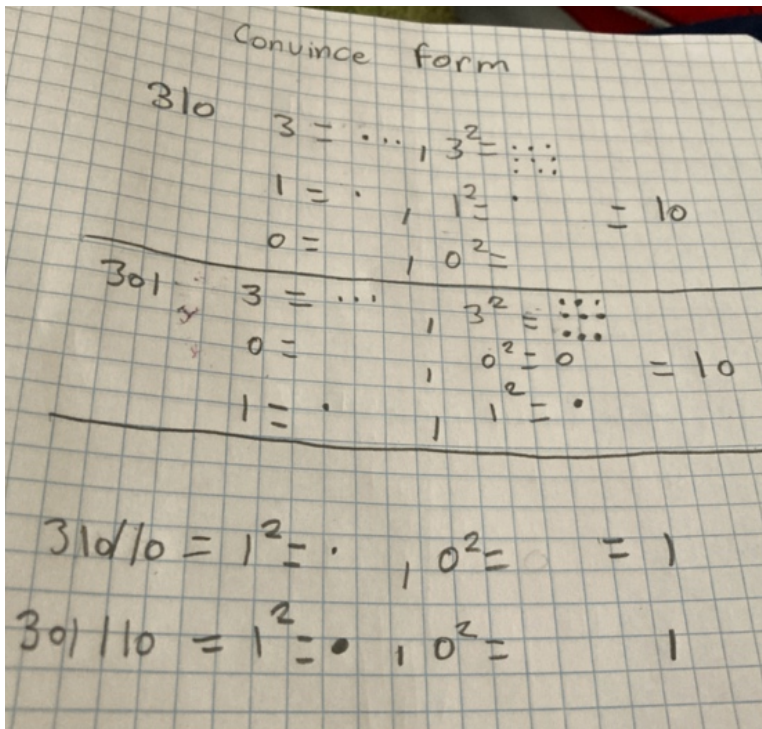 Convince form
310 3 = ..., 3²= :::
1 = . , 1²= . = 10
0 = , 0²=
301 3 = ... , 3² = :::
0 = , 0²= 0 = 10
1 = . , 1² = .
310/10 = 1²= . , 0²= = 1
301/10 = 1²= . , 0²= 1